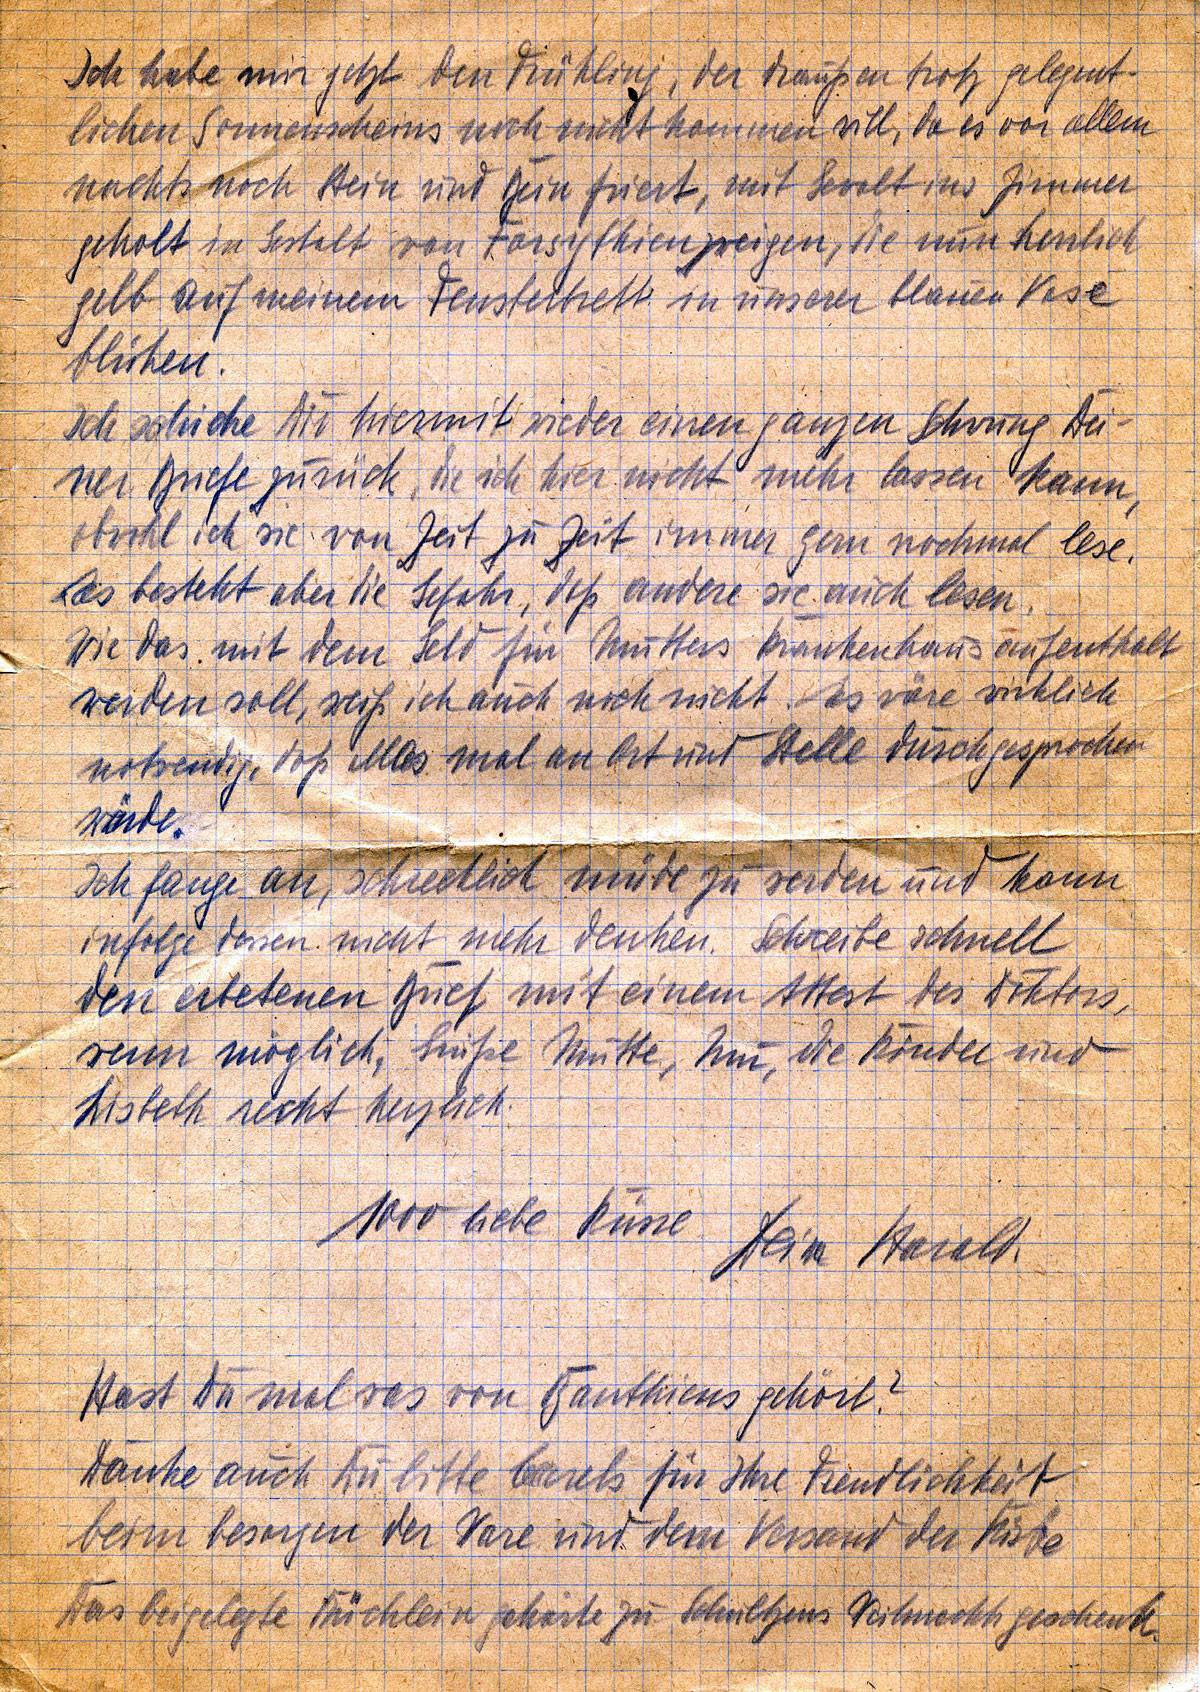 Ich habe mir jetzt den Frühling, der draußen trotz gelegent-
lichen Sonnenscheins noch nicht kommen will, da es vor allem
nachts noch Stein und Bein friert, mit Gewalt ins Zimmer
geholt in Gestalt von Forsythienzweigen, die nun herrlich
gelb auf meinem Fensterbrett in unserer blauen Vase
blühen.
Ich schicke Dir hiermit wieder einen ganzen Schwung Dei-
ner Briefe zurück, die ich hier nicht mehr lassen kann,
obwohl ich sie von Zeit zu Zeit immer gern nochmal lese.
Es besteht aber die Gefahr, daß andere sie auch lesen.
Wie das mit dem Geld für Mutters Krankenhausaufenthalt
werden soll, weiß ich auch noch nicht. Es wäre wirklich
notwendig, daß Alles mal an Ort und Stelle durchgesprochen
würde.
Ich fange an, schrecklich müde zu werden und kann
infolge dessen nicht mehr denken. Schreibe schnell
den erbetenen Brief mit einem Attest des Doktors,
wenn möglich, Grüße Mutte, Mu, die Kinder und
Lisbeth recht herzlich.
1000 liebe Küsse Dein Harald.
Hast Du mal was von gehört?
Danke auch Du bitte für Ihre Freundlichkeit
beim besorgen der Vase und dem Versand der Kiste
Das beigelegte Tüchlein gehörte zu Schultzens Weihnachtsgeschenk.